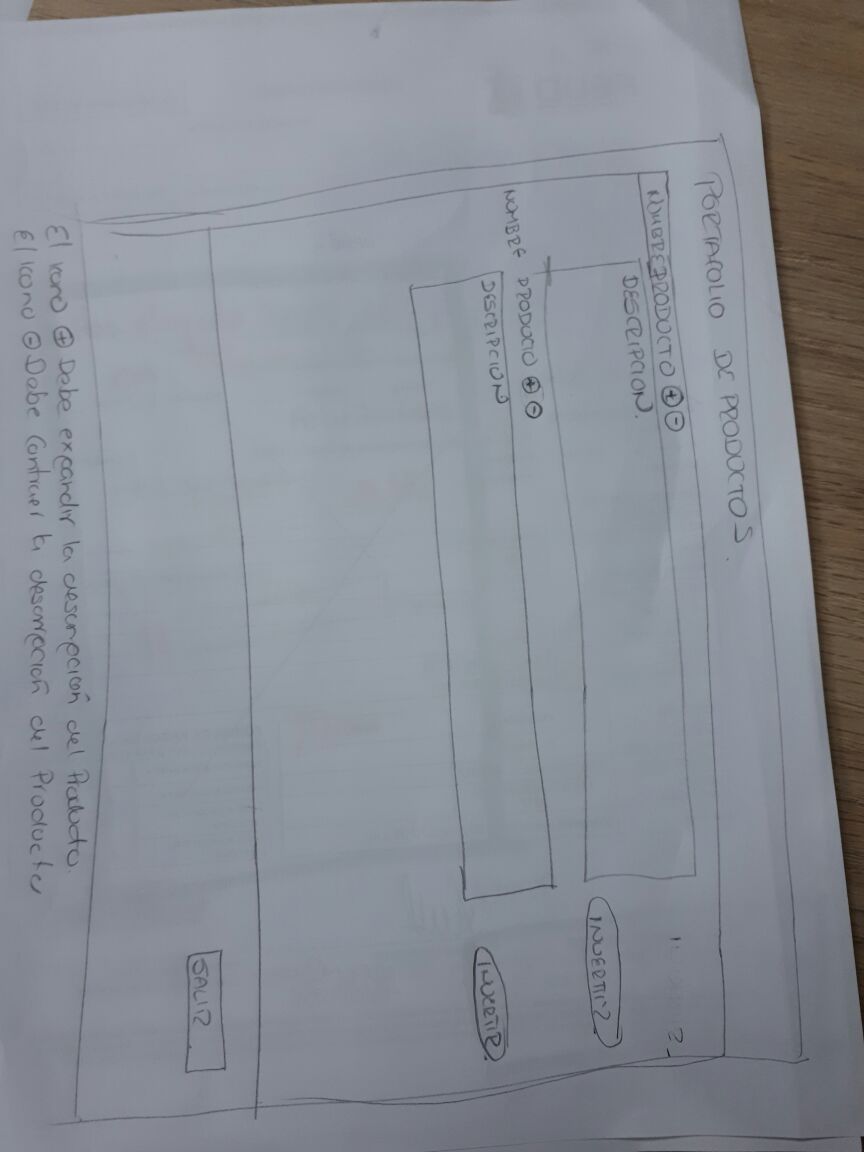 PORTAFOLIO DE PRODUCTOS.
NOMBRE PRODUCTO ⊕ ⊖
DESCRIPCION.
INVERTIR
NOMBRE PRODUCTO ⊕ ⊖
DESCRIPCION
INVERTIR
SALIR
El icono ⊕ Debe expandir la descripción del Producto.
El icono ⊖ Debe contraer la descripción del Producto